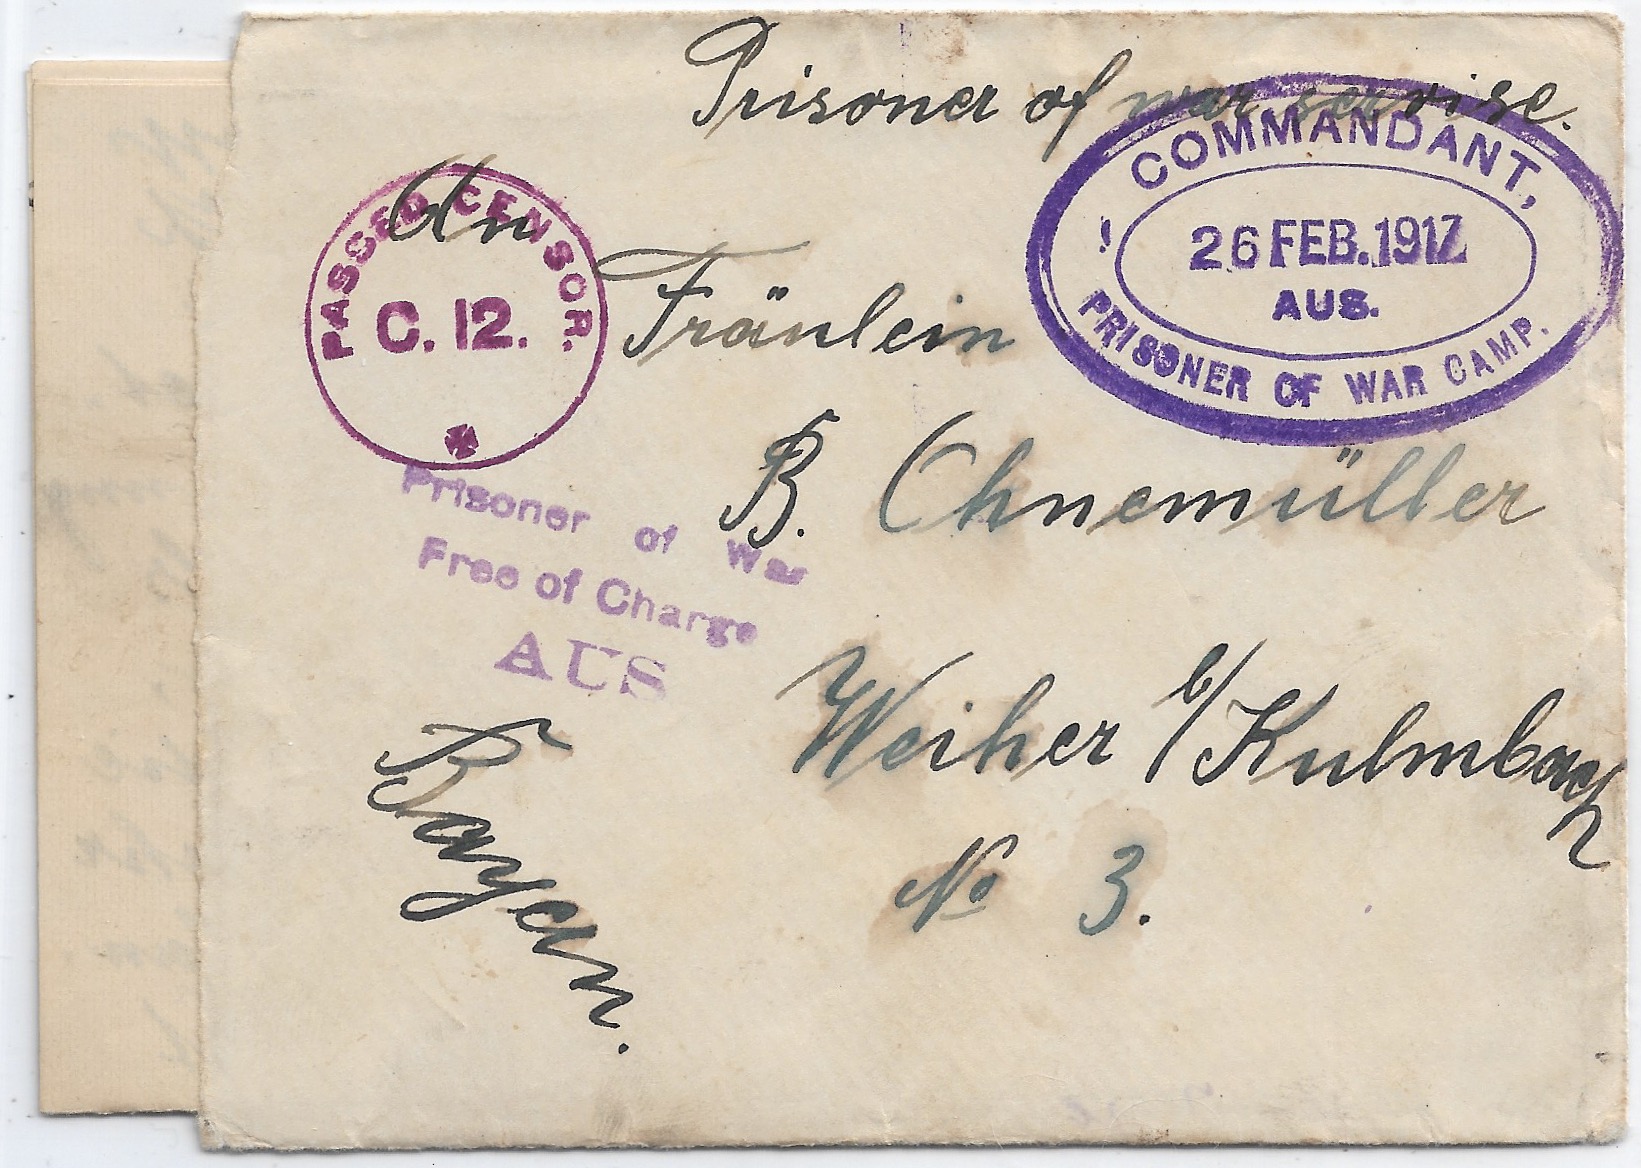 Prisoner of war servise.
COMMANDANT,
26 FEB. 1917
AUS.
PRISONER OF WAR CAMP.
PASSED CENSOR.
C. 12.
An
Fräulein
B. Ohnemüller
Prisoner of War
Free of Charge
AUS
Weiher b/Kulmbach
No 3.
Bayern.